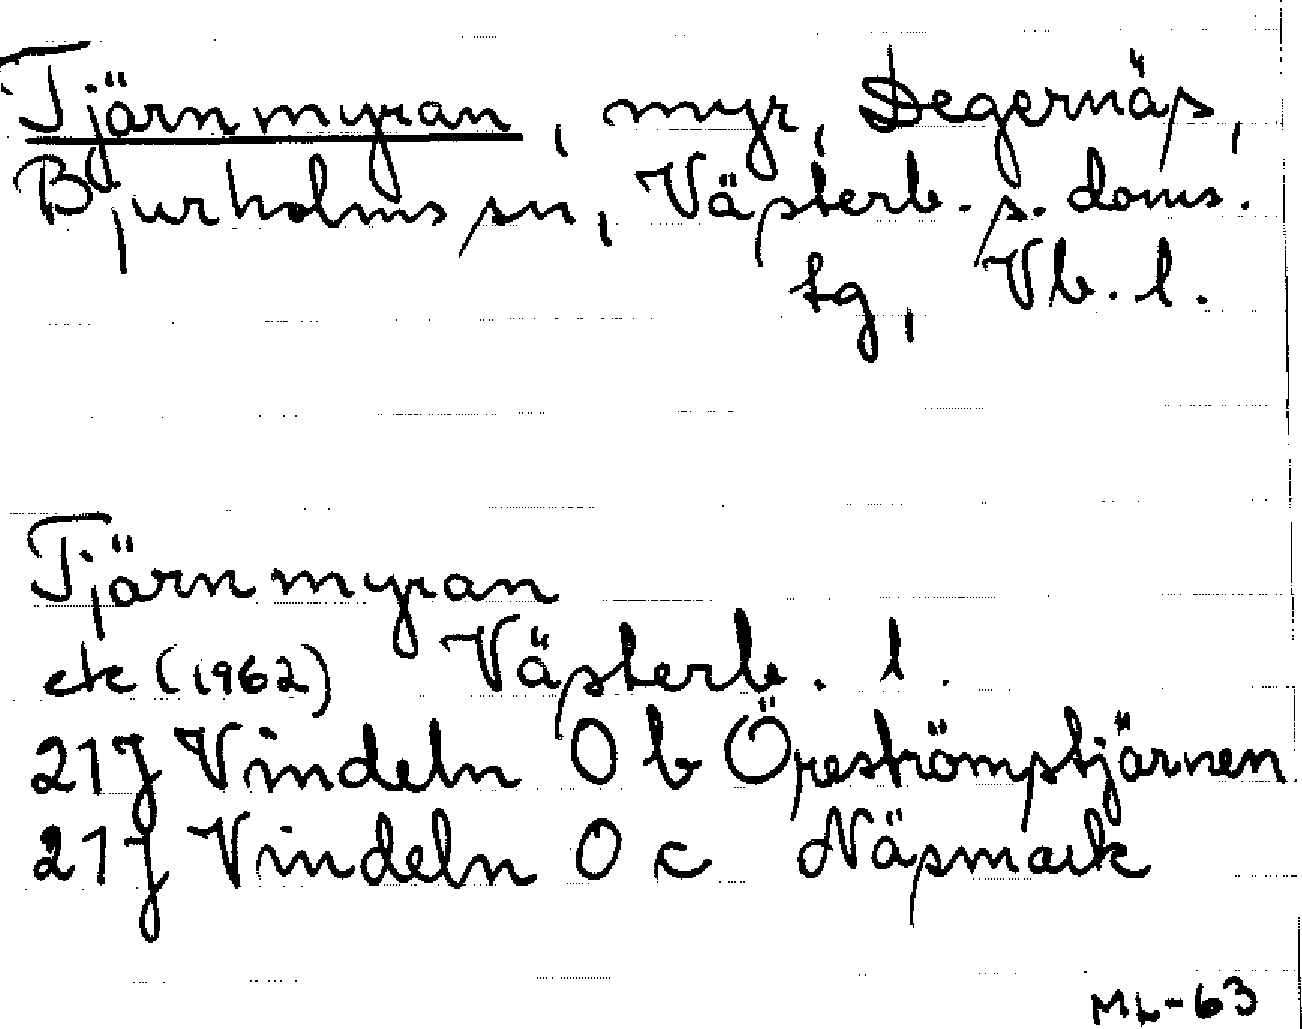 Tjärnmyran, myr, Degernäs,
Bjurholms sn, Västerb. s. doms.
tg, Vb. l.
Tjärnmyran
ek (1962) Västerb. l.
21J Vindeln 0 b Öreströmstjärnen
21J Vindeln 0 c Näsmark
ML-63